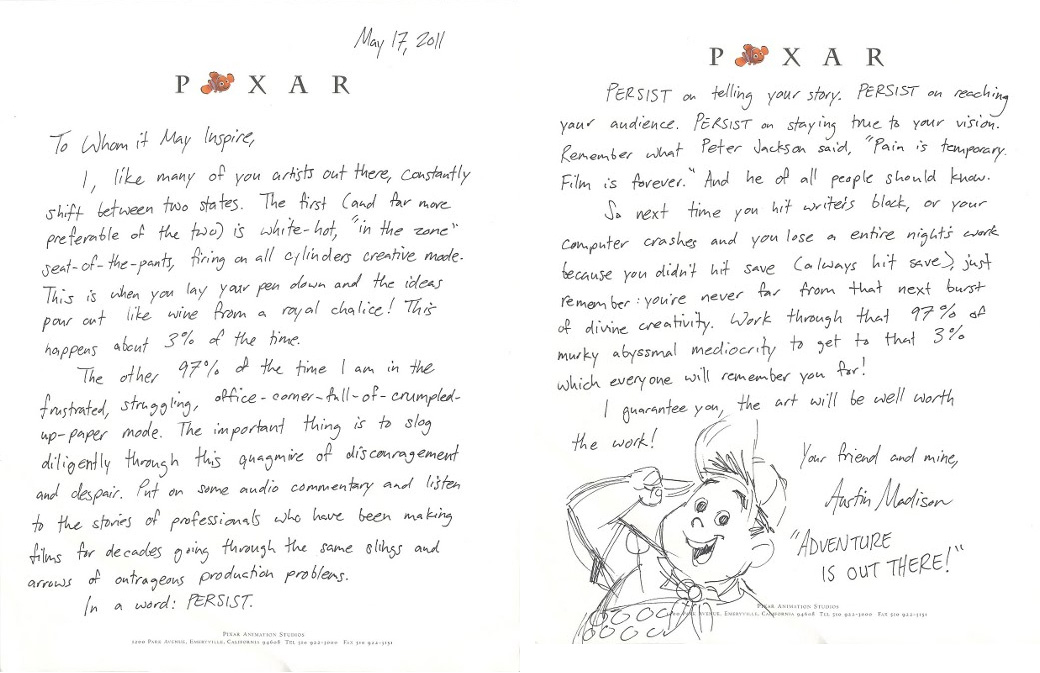 May 17, 2011
P XAR
To Whom it May Inspire,
I, like many of you artists out there, constantly
shift between two states. The first (and far more
preferable of the two) is white-hot, "in the zone"
seat-of-the-pants, firing on all cylinders creative mode.
This is when you lay your pen down and the ideas
pour out like wine from a royal chalice! This
happens about 3% of the time.
The other 97% of the time I am in the
frustrated, struggling, office-corner-full-of-crumpled-
up-paper mode. The important thing is to slog
diligently through this quagmire of discouragement
and despair. Put on some audio commentary and listen
to the stories of professionals who have been making
films for decades going through the same slings and
arrows of outrageous production problems.
In a word: PERSIST.
PIXAR ANIMATION STUDIOS
1200 PARK AVENUE, EMERYVILLE, CALIFORNIA 94608 TEL 510 922-3000 FAX 510 922-3151
P XAR
PERSIST on telling your story. PERSIST on reaching
your audience. PERSIST on staying true to your vision.
Remember what Peter Jackson said, "Pain is temporary.
Film is forever." And he of all people should know.
So next time you hit writer's block, or your
computer crashes and you lose a entire night's work
because you didn't hit save (always hit save), just
remember: you're never far from that next burst
of divine creativity. Work through that 97% of
murky abyssmal mediocrity to get to that 3%
which everyone will remember you for!
I guarantee you, the art will be well worth
the work!
Your friend and mine,
Austin Madison
"ADVENTURE
IS OUT THERE!"
PIXAR ANIMATION STUDIOS
AVENUE, EMERYVILLE, CALIFORNIA 94608 TEL 510 922-3000 FAX 510 922-3151